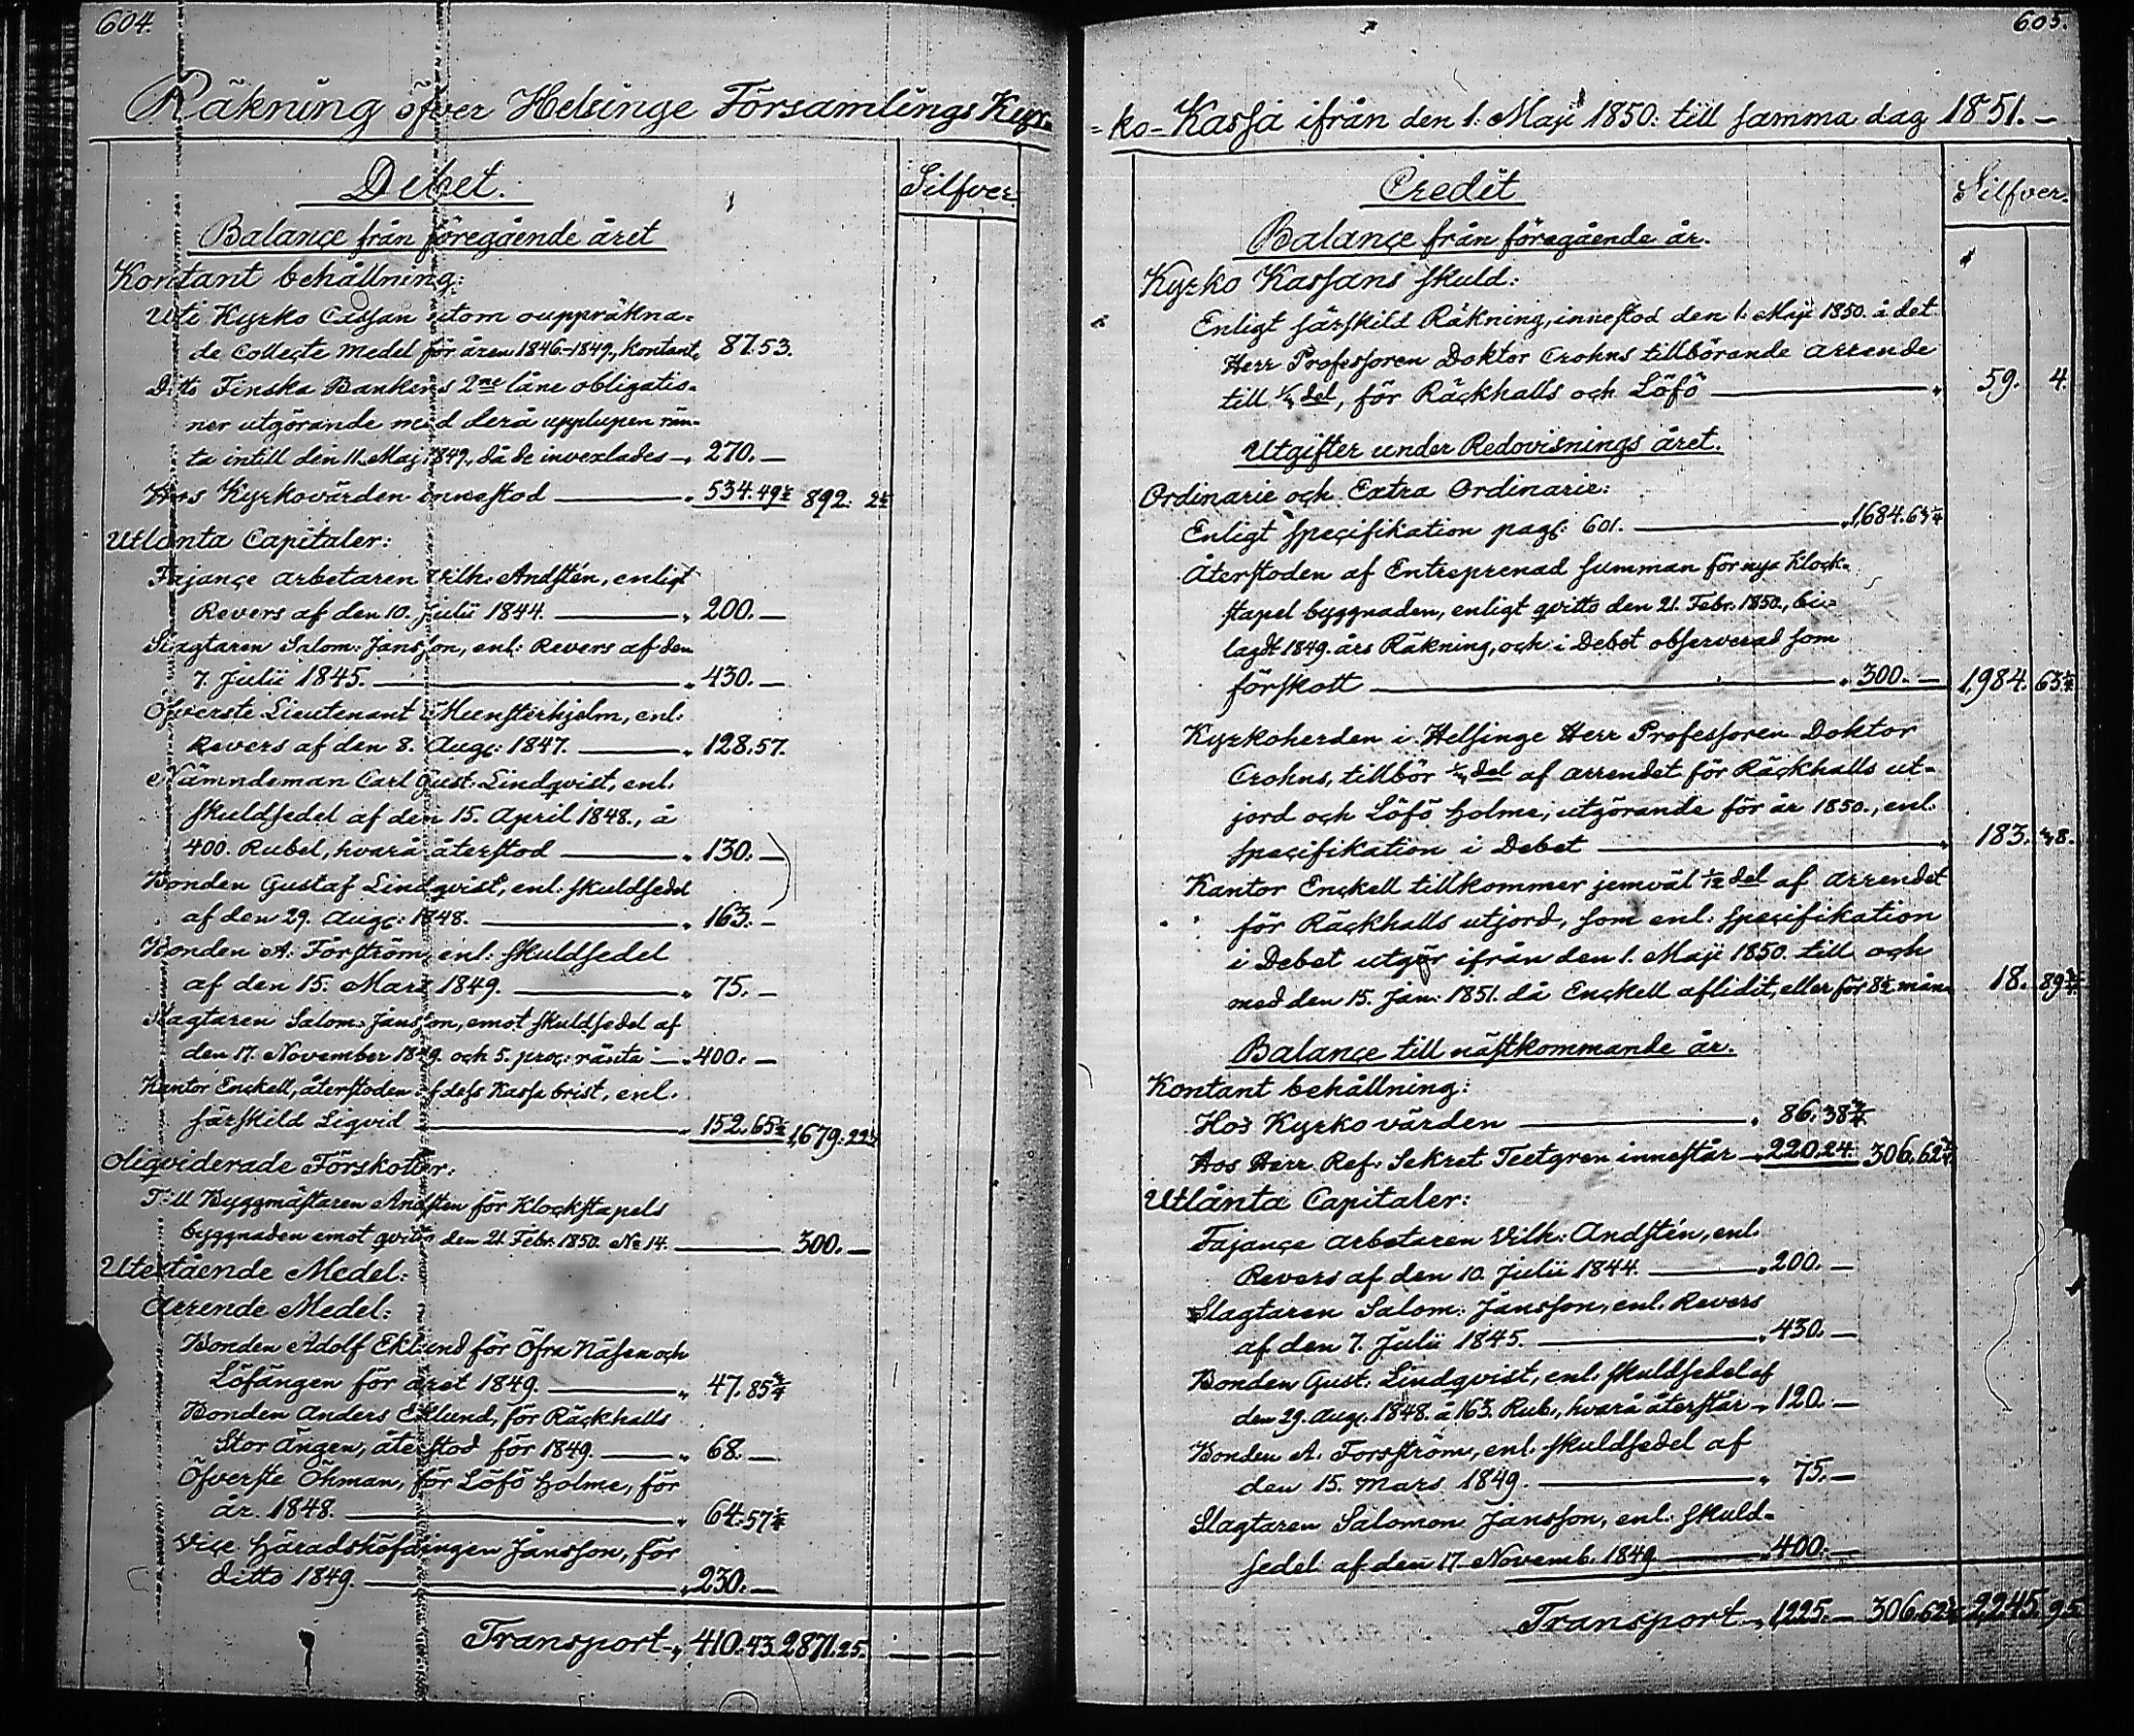 604.
Räkning öfver Helsinge Församlings Kyr=
Debet. Silfver.
Balançe från föregående året
Kontant behållning:
Uti Kyrko Cassan utom ouppräkna=
de Colleçte medel för åren 1846-1849, kontant, 87.53.
Dito Finska Bankens 2ne låne obligatio=
ner utgörande med derå upplupen rän=
ta intill den 11. Maj 1849, då de invexlades —„ 270.—
Hos Kyrkovärden innestod — „ 534.49½ 892: 2½
Utlånta Capitaler:
Fajançe arbetaren Vilh: Andstén, enligt
Revers af den 10. Julii 1844. — „ 200.—
Slagtaren Salom: Jansson, enl: Revers af den
7. Julii 1845. — „ 430.—
Öfverste Lieutenant Munsterhjelm, enl:
Revers af den 8. Aug: 1847. — „ 128.57.
Nämndeman Carl Gust: Lindqvist, enl.
skuldsedel af den 15. April 1848., à
400. Rubel, hvarå återstod — „ 130.—
Bonden Gustaf Lindqvist, enl: skuldsedel
af den 29. Aug: 1848. — „ 163.—
Bonden A: Forström, enl: skuldsedel
af den 15. Mars 1849. — „ 75.—
Slagtaren Salom: Jansson, emot skuldsedel af
den 17. November 1849. och 5. proç: ränta — „ 400.—
KantorEnçkell, återstoden af dess Kassa brist, enl.
särskild Liqvid — „ 152.65½ 1,679:22½
Oliqviderade Förskotter:
Till Byggmästaren Andsten för Kloçkstapels
byggnaden emot qvitto den 21. Febr: 1850. No 14. — 300.—
Utestående Medel:
Arrende Medel:
Bonden Adolf Eklund för Öfra Näsen och
Löfängen för året 1849. — „ 47.85¾
Bonden Anders Eklund, för Räçkhalls
Stor ängen, återstod för 1849. — „ 68.—
Öfverste Öhman, för Löfö holme, för
år. 1848. — „ 64.57¼
Viçe häradshöfdingen Jansson, för
ditto 1849. — „ 230.—
Transport —„ 410.43. 2871.25. — —
605.
=ko-Kassa ifrån den 1. Maji 1850: till samma dag 1851.—
Credit Silfver.
Balançe från föregående år.
Kyrko Kassans skuld:
Enligt särskild Räkning, innestod den 1. Maji 1850. å det
Herr Professoren Doktor Crohns tillbörande arrende
till del, för Räçkhalls och Löfö — „ 59. 4.
Utgifter under Redovisnings året.
Ordinarie och Extra Ordinarie:
Enligt speçifikation pag: 601. — „ 1,684.63¼
Återstoden af Entreprenad summan för nya Kloçk=
stapel byggnaden, enligt qvitto den 21. Febr: 1850., bi=
lagdt 1849. års Räkning, och i Debet observerad som
förskott — „ 300.— 1,984. 63¼
Kyrkoherden i Helsinge Herr Professoren Doktor
Crohns, tillbör del af arrendet för Räçkhalls ut=
jord och Löfö holme, utgörande för år 1850., enl.
speçifikation i Debet — „ 183. 38.
Kantor Ençkell tillkommer jemväl 1/12 del af arrendet
för Räçkhalls utjord, som enl: speçifikation
i Debet utgör ifrån den 1. Maji 1850. till och
med den 15. Jan: 1851. då Ençkell aflidit, eller för 8½ mån. 18. 89¾
Balançe till nästkommande år.
Kontant behållning:
Hos Kyrkovärden — „ 86.38¾
Hos Herr Ref: Sekret Teetgren innestår —„ 220.24. 306.62¾
Utlånta Capitaler:
Fajançe arbetaren Vilh: Andstén, enl.
Revers af den 10. Julii 1844. — „ 200.—
Slagtaren Salom: Jansson, enl. Revers
af den 7. Julii 1845. — „ 430.—
Bonden Gust: Lindqvist, enl. skuldsedel af
den 29. Aug: 1848. à 163. Rub., hvarå återstår —„ 120.—
Bonden A. Forsström, enl. skuldsedel af
den 15. Mars 1849. — „ 75.—
Slagtaren Salomon Jansson, enl: skuld=
sedel af den 17. Novemb. 1849. — „ 400.—
Transport —„ 1225.— 306.62¾ 2,245. 95.